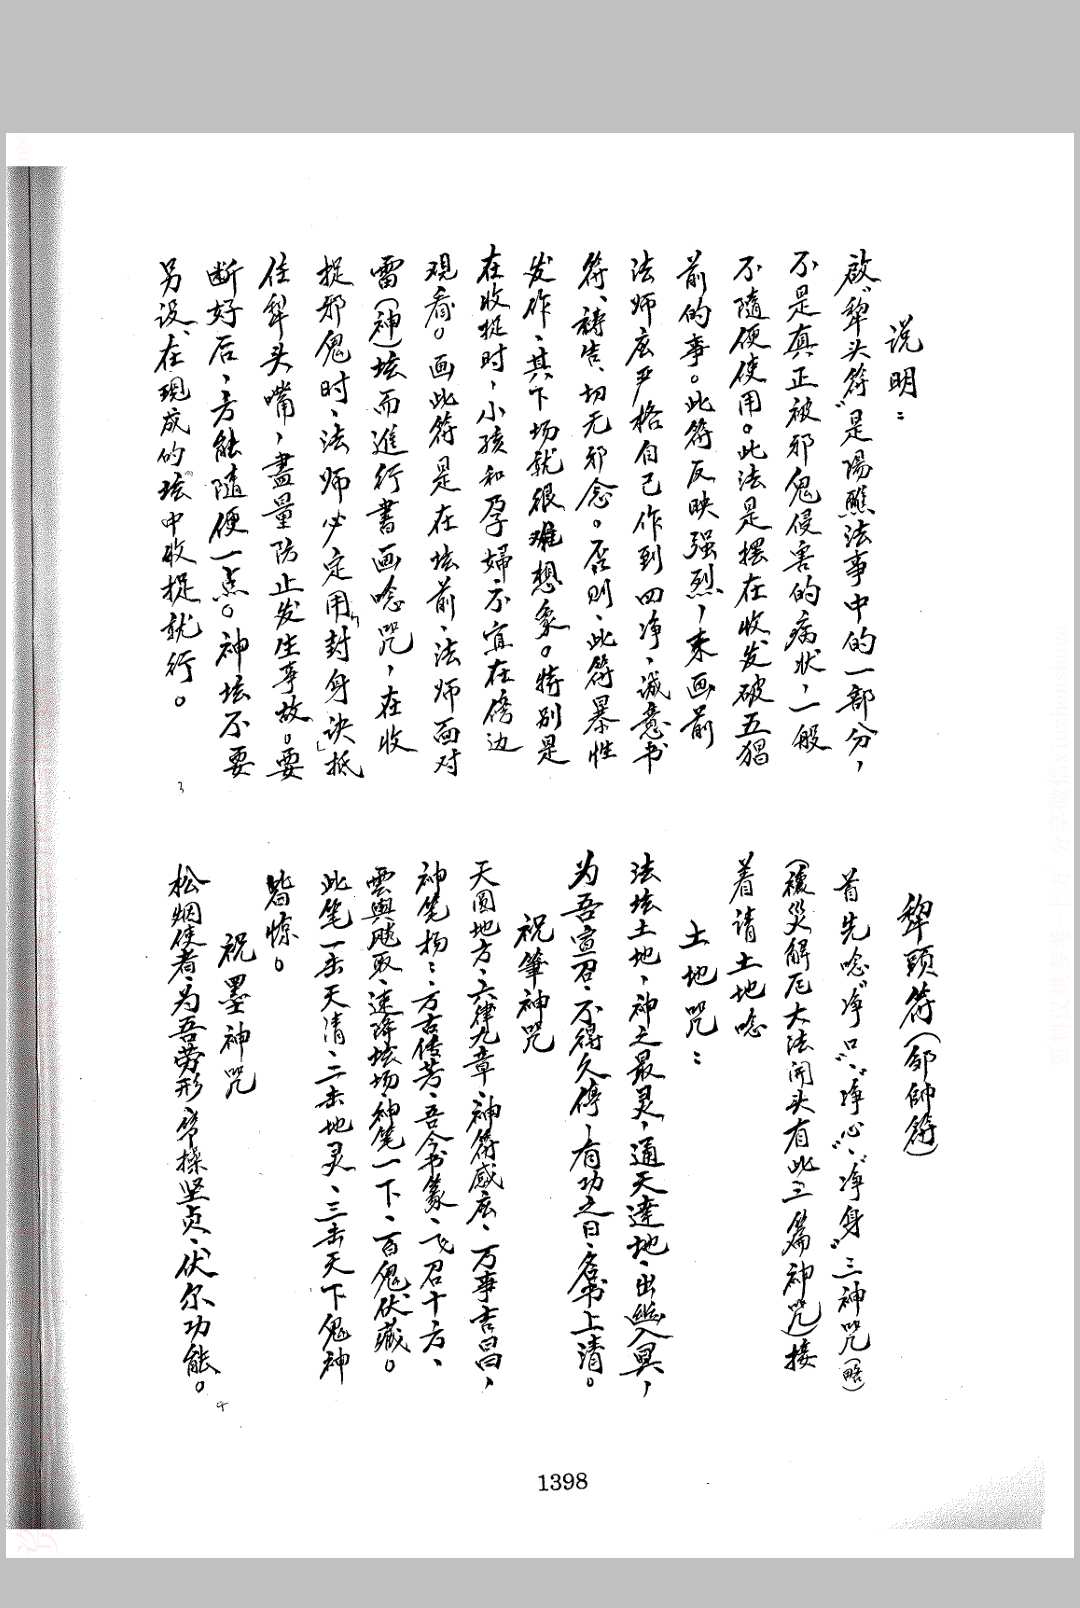 说明：
啟“犂头符”是陽醮法事中的一部分，
不是真正被邪鬼侵害的病状，一般
不隨便使用。此法是摆在收发破五猖
前的事。此符反映强烈，未画前
法师应严格自己作到四净、诚意书
符、祷告、切无邪念。否则、此符暴性
发作、其下场就很难想象。特别是
在收捉时，小孩和孕婦不宜在傍边
观看。画此符是在坛前、法师面对
雷（神）坛而進行書画唸咒，在收
捉邪鬼时、法师必定用“封身诀”抵
住犂头嘴，盡量防止发生事故。要
断好后、方能隨便一点。神坛不要
另设、在現成的坛中收捉就行。
3
犂頭符（邹帥符）
首先唸“净口”、“净心”、“净身”三神咒（略）
（禳災解厄大法開头有此三篇神咒）接
着请土地唸
土地咒：
法坛土地，神之最灵，通天達地、出幽入冥，
为吾宣召、不得久停，有功之日、名书上清。
祝筆神咒
天圆地方、六律九章、神符感应、万事吉昌，
神笔扬：方古传芳、吾今书篆、飞召十方、
雲輿飈馭、速降坛场、神笔一下、百鬼伏藏。
此笔一击天清、二击地灵、三击天下鬼神
皆惊。
祝墨神咒
松烟使者、为吾劳形、操坚贞、伏尔功能。
4
1398